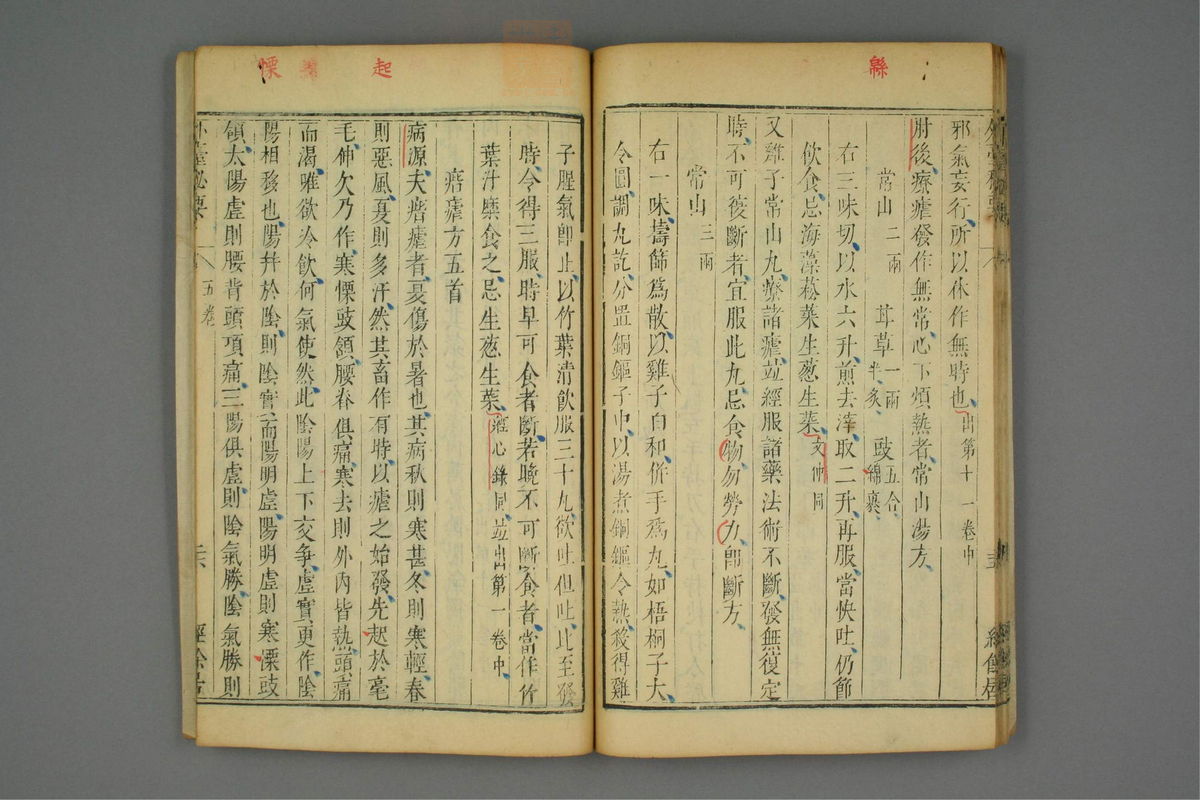 緜
邪氣妄行所以休作無時也出第十一卷中
肘後療瘧發作無常心下煩熱者常山湯方
常山二兩 甘草一兩半炙 豉五合綿裹
右三味切以水六升煎去滓取二升再服當快吐仍節
飲食忌海藻菘菜生葱生菜文仲同
又雞子常山丸療諸瘧竝經服諸藥法術不斷發無復定
時不可後斷者宜服此丸忌食物勿勞力卽斷方
常山三兩
右一味擣篩爲散以雞子白和併手爲丸如梧桐子大
令圓調丸訖分置銅鏂子中以湯煮銅鏂令熱殺得雞
起 慄
子腥氣卽止以竹葉清飲服三十丸欲吐但吐比至發
時令得三服時早可食者斷若晚不可斷食者當作竹
葉汁糜食之忌生葱生菜蓰心錄同竝出第一卷中
痎瘧方五首
病源夫痎瘧者夏傷於暑也其病秋則寒甚冬則寒輕春
則惡風夏則多汗然其畜作有時以瘧之始發先起於毫
毛伸欠乃作寒慄鼓頷腰脊俱痛寒去則外內皆熱頭痛
而渴唯欲冷飲何氣使然此陰陽上下交爭虛實更作陰
陽相移也陽幷於陰則陰實而陽明虛陽明虛則寒慄鼓
頷太陽虛則腰背頭項痛三陽俱虛則陰氣勝陰氣勝則
外臺秘要 五卷 二六 經餘居